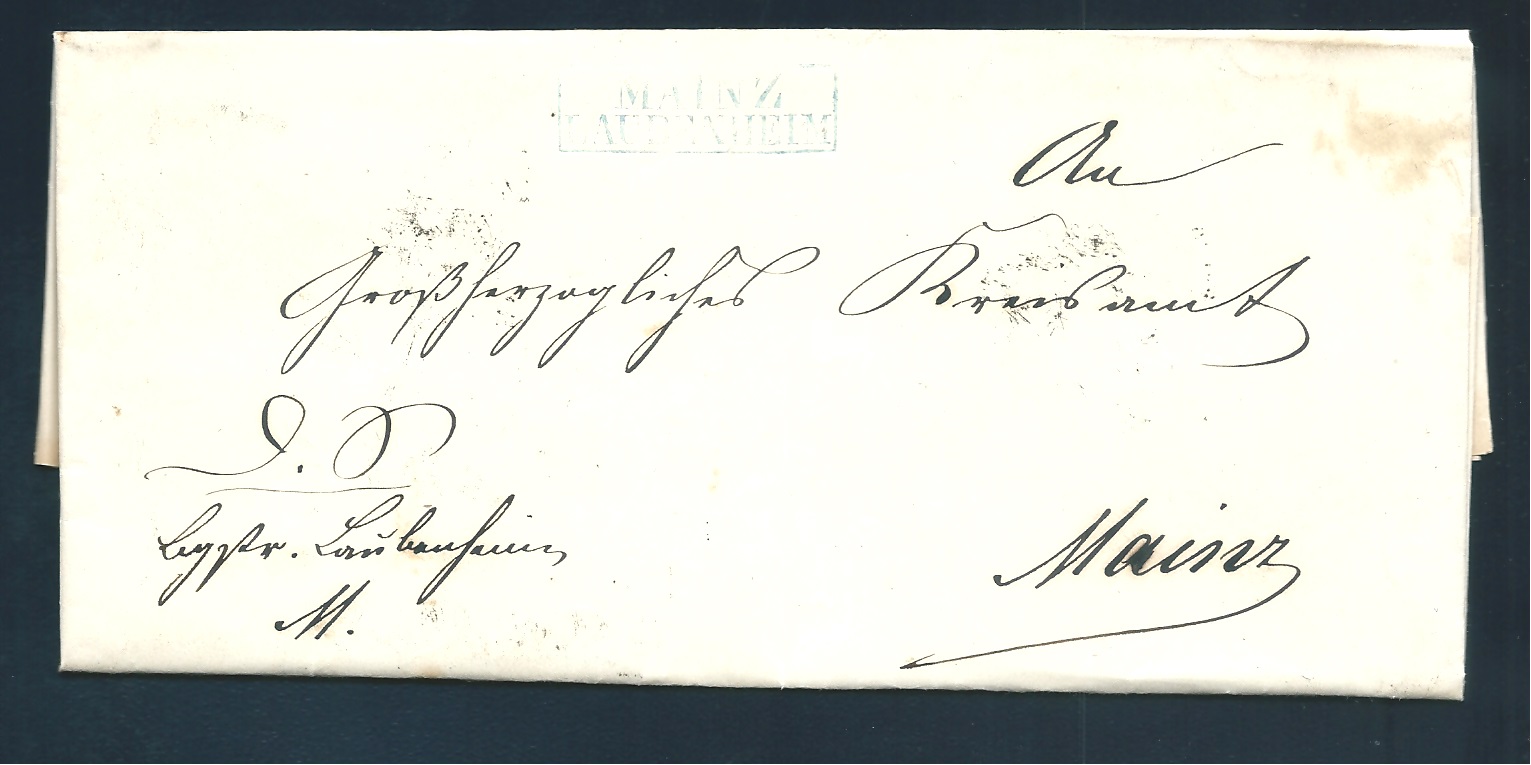 MAINZ
LAUBENHEIM
An
Großherzogliches Kreisamt
D. S.
Bgstr. Laubenheim
M.
Mainz